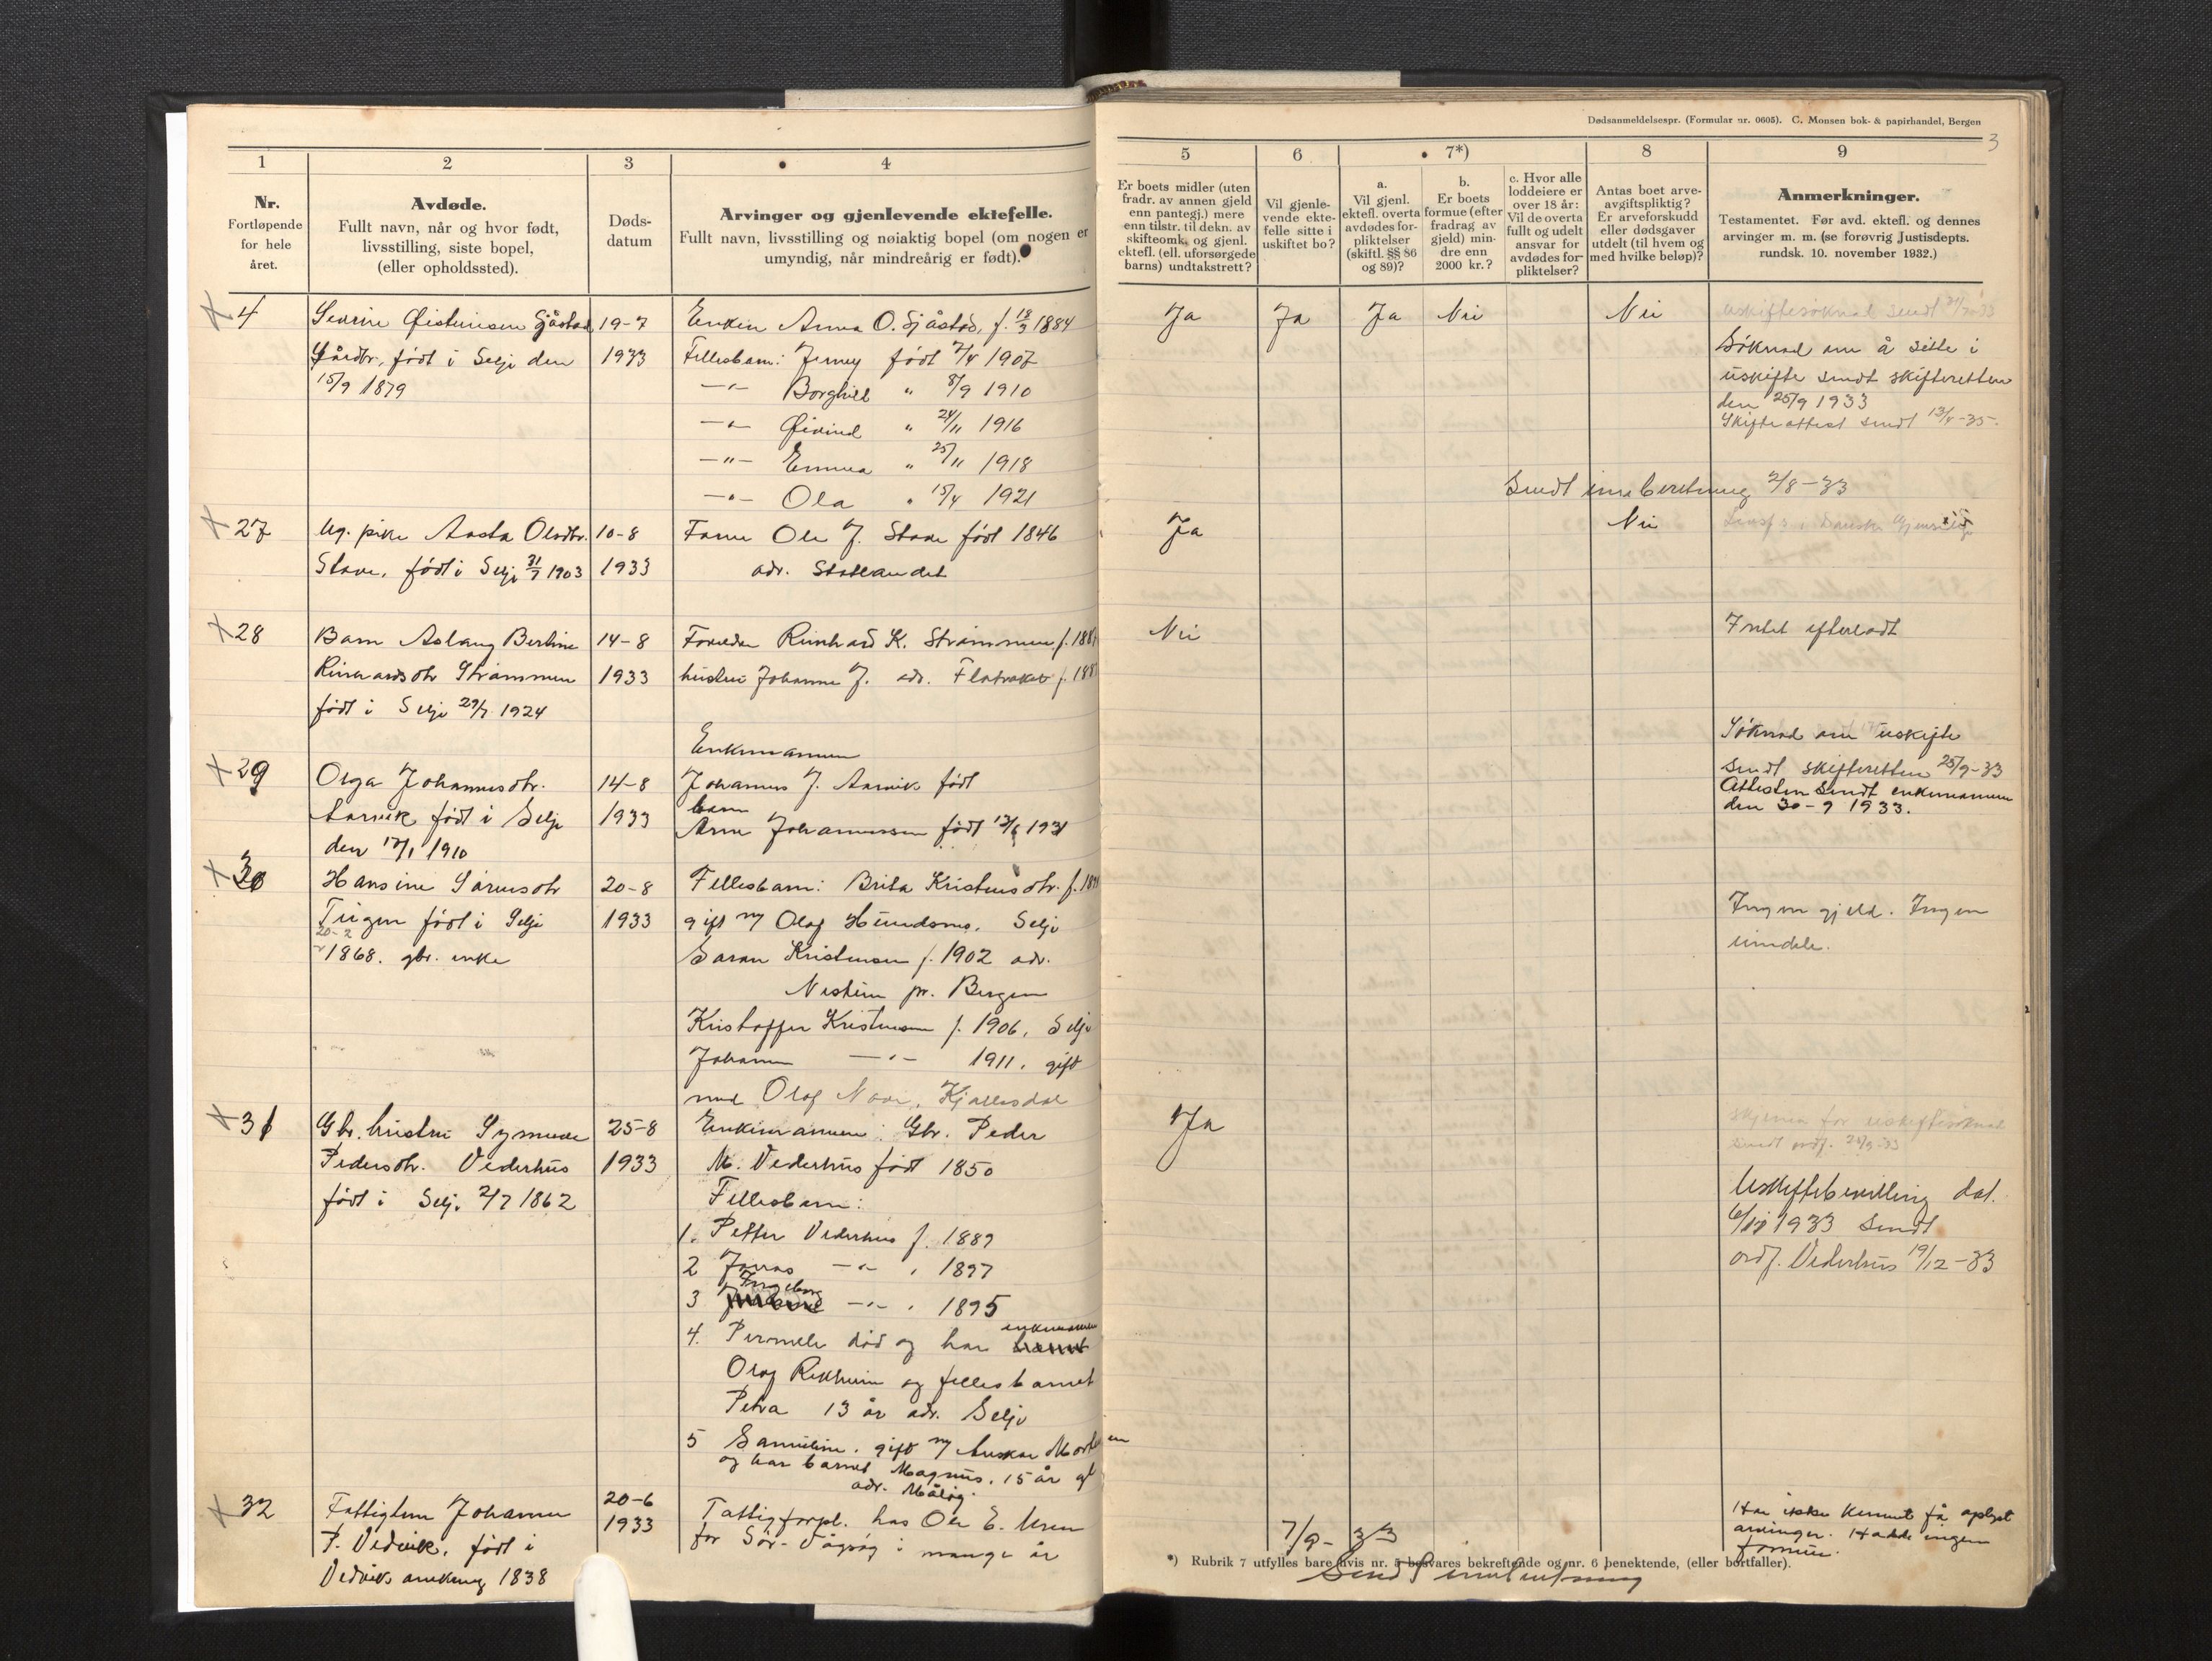 Dødsanmeldelsespr. (Formular nr. 0605). C. Monsen bok- & papirhandel, Bergen
3
1
2
3
4
Nr.
Fortløpende
for hele
året.
Avdøde.
Fullt navn, når og hvor født,
livsstilling, siste bopel,
(eller opholdssted).
Døds-
datum
Arvinger og gjenlevende ektefelle.
Fullt navn, livsstilling og nøiaktig bopel (om nogen er
umyndig, når mindreårig er født).
5
6
7*)
8
9
Er boets midler (uten
fradr. av annen gjeld
enn pantegj.) mere
enn tilstr. til dekn. av
skifteomk. og gjenl.
ektefl. (ell. uforsørgede
barns) undtakstrett?
Vil gjenle-
vende ekte-
felle sitte i
uskiftet bo?
a.
Vil gjenl.
ektefl. overta
avdødes for-
pliktelser
(skiftl. §§ 86
og 89)?
b.
Er boets
formue (efter
fradrag av
gjeld) min-
dre enn
2000 kr.?
c. Hvor alle
loddeiere er
over 18 år:
Vil de overta
fullt og udelt
ansvar for
avdødes for-
pliktelser?
Antas boet arve-
avgiftspliktig?
Er arveforskudd
eller dødsgaver
utdelt (til hvem og
med hvilke beløp)?
Anmerkninger.
Testamentet. Før avd. ektefl. og dennes
arvinger m. m. (se forøvrig Justisdepts.
rundsk. 10. november 1932.)
4
Severin Øisteinsen Sjåstad
Gårdbr, født i Selje den
15/9 1879
19-7
1933
Enken Anna O. Sjåstad, f. 18/3 1884
Fellesbarn: Jenny født 7/4 1907
-"- Borghild " 8/9 1910
-"- Øivind " 24/11 1916
-"- Emma " 25/11 1918
-"- Ola " 15/4 1921
Ja
Ja
Ja
Nei
Nei
Søknad om å sitte i
uskifte sendt skifteretten
den 25/9 1933
Skifteattest sendt 13/4-35.
Sendt innberetning 2/8-33
27
Ug. pike Aasta Olsdtr.
Stave, født i Selje 31/7 1903
10-8
1933
Faren Ole J. Stave født 1846
adr. Statlandet
Ja
Nei
28
Barn Aslaug Bertine
Reinhardsdtr Strømmen
født i Selje 29/7 1924
14-8
1933
Foreldre Reinhard K. Strømmen f.
hustru Johanne J. adr. Flatraket f.
Nei
Intet efterladt
29
Olga Johannesdtr.
Aarvik født i Selje
den 17/1 1910
14-8
1933
Enkemannen
Johannes J. Aarvik født
barn
Arne Johannessen født 12/6 1931
Søknad om uskifte
sendt skifteretten 25/9-33
Attesten sendt enkemannen
den 30-9 1933.
30
Hansine Sørensdtr
Teigen født i Selje
20-2
1868. gbr. enke
20-8
1933
Fellesbarn: Brita Kristensdtr. f.
gift m/ Olaf Hundsnes, Selje
Søren Kristensen f. 1902 adr.
Nesttun pr. Bergen
Kristoffer Kristensen f. 1906, Selje
Johanne -"- 1911. gift
med Olaf Nave, Kjøllesdal
Ingen gjeld. Ingen
eiendele.
31
Gbr. hustru Synneve
Pedersdtr. Vederhus
født i Selje 2/7 1862
25-8
1933
Enkemannen: Gbr. Peder
M. Vederhus født 1850
Fellesbarn:
1. Petter Vederhus f. 1889
2 Jonas -"- " 1897
3 Ingeborg -"- " 1895
4. Pernille død og har enkemannen
Olaf Rekheim og fellesbarnet
Petra 13 år adr. Selje
5 Samueline. gift m/ Anskar Mortensen
og har barnet Magnus. 15 år gl
adr. Måløy.
Ja
Skjema for uskiftesøknad
sendt ordf. 26/9-33
Uskiftebevilling dat.
6/12 1933 sendt
ordf. Vederhus 19/12-33
32
Fattiglem Johanne
P. Vedvik, født i
Vedviks anneks 1838
20-6
1933
Fattigforpl. hos Ole E. Uren
for Sør-Vågsøy i mange år
Har ikke kunnet få oplyst
arvinger. Hadde ingen
formue.
7/9-33
*) Rubrik 7 utfylles bare hvis nr. 5 besvares bekreftende og nr. 6 benektende, (eller bortfaller).
Sendt innberetning